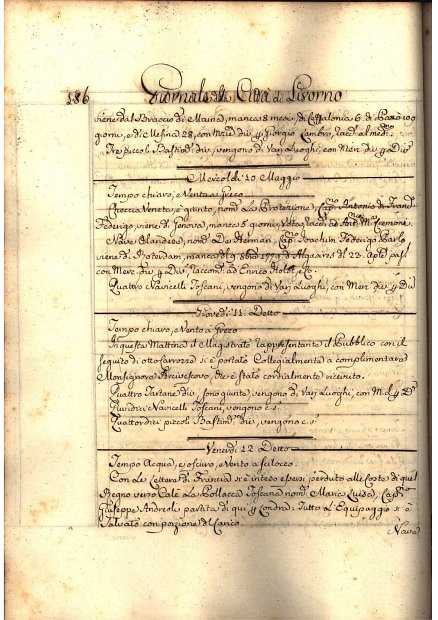 186 Giornale della Città di Livorno
viene dal Braccio di Maina, manca 8 mesi, di Cefalonia 6. di
giorni, e di Messina 28, con Merc. div. p. Giorgio racc. al med.mo
Tre piccoli Bastim.ti div. vengono di Varj Luoghi, con Merc. div. p. Div.
Mercoldì 10 Maggio
Tempo chiaro, e Vento a Greco
Veneta è giunto, nom. La Protezione, Cap.no Antonio di Franc.
Federigo, viene di Genova, manca 5 giorni, Vota, racc. ad Ant. M.a Cremoni
Nave Olandese, nom. Herman, Cap.no Joachim Federigo Barlo
viene di Roterdam, manca 9 1779, di Algeaires di 23.
con Merc. div. p. Div. raccom. ad Enrico
Quattro Navicelli Toscani, vengono di Varj Luoghi, con Merc. div. p. Div.
Giovedì 11 Detto
Tempo chiaro, e Vento a Greco
In questa Mattina il Magistrato rappresentante il Pubblico con il
seguito di otto carrozze si è portato Collegialmente a complimentare
Monsignore Arcivescovo, ed è stato cordialmente ricevuto.
Quattro Tartane div. sono giunte, vengono di Varj Luoghi, con M. d. p. D.
Navicelli Toscani, vengono c. s.
Quattordici piccoli Bastim.ti div. vengono c. s.
Venerdì 12 Detto
Tempo Acqua, e oscuro, e Vento a Scilocco
Con Le Lettere di Francia si è inteso essersi perduto alle Coste di quel
Regno verso Calè La Pollacca Toscana nom. Maria Luisa, Cap.no
Giuseppe Andreoli partita di qui p. Londra: tutto L'Equipaggio si è
Salvato con porzione del Carico.
Nave